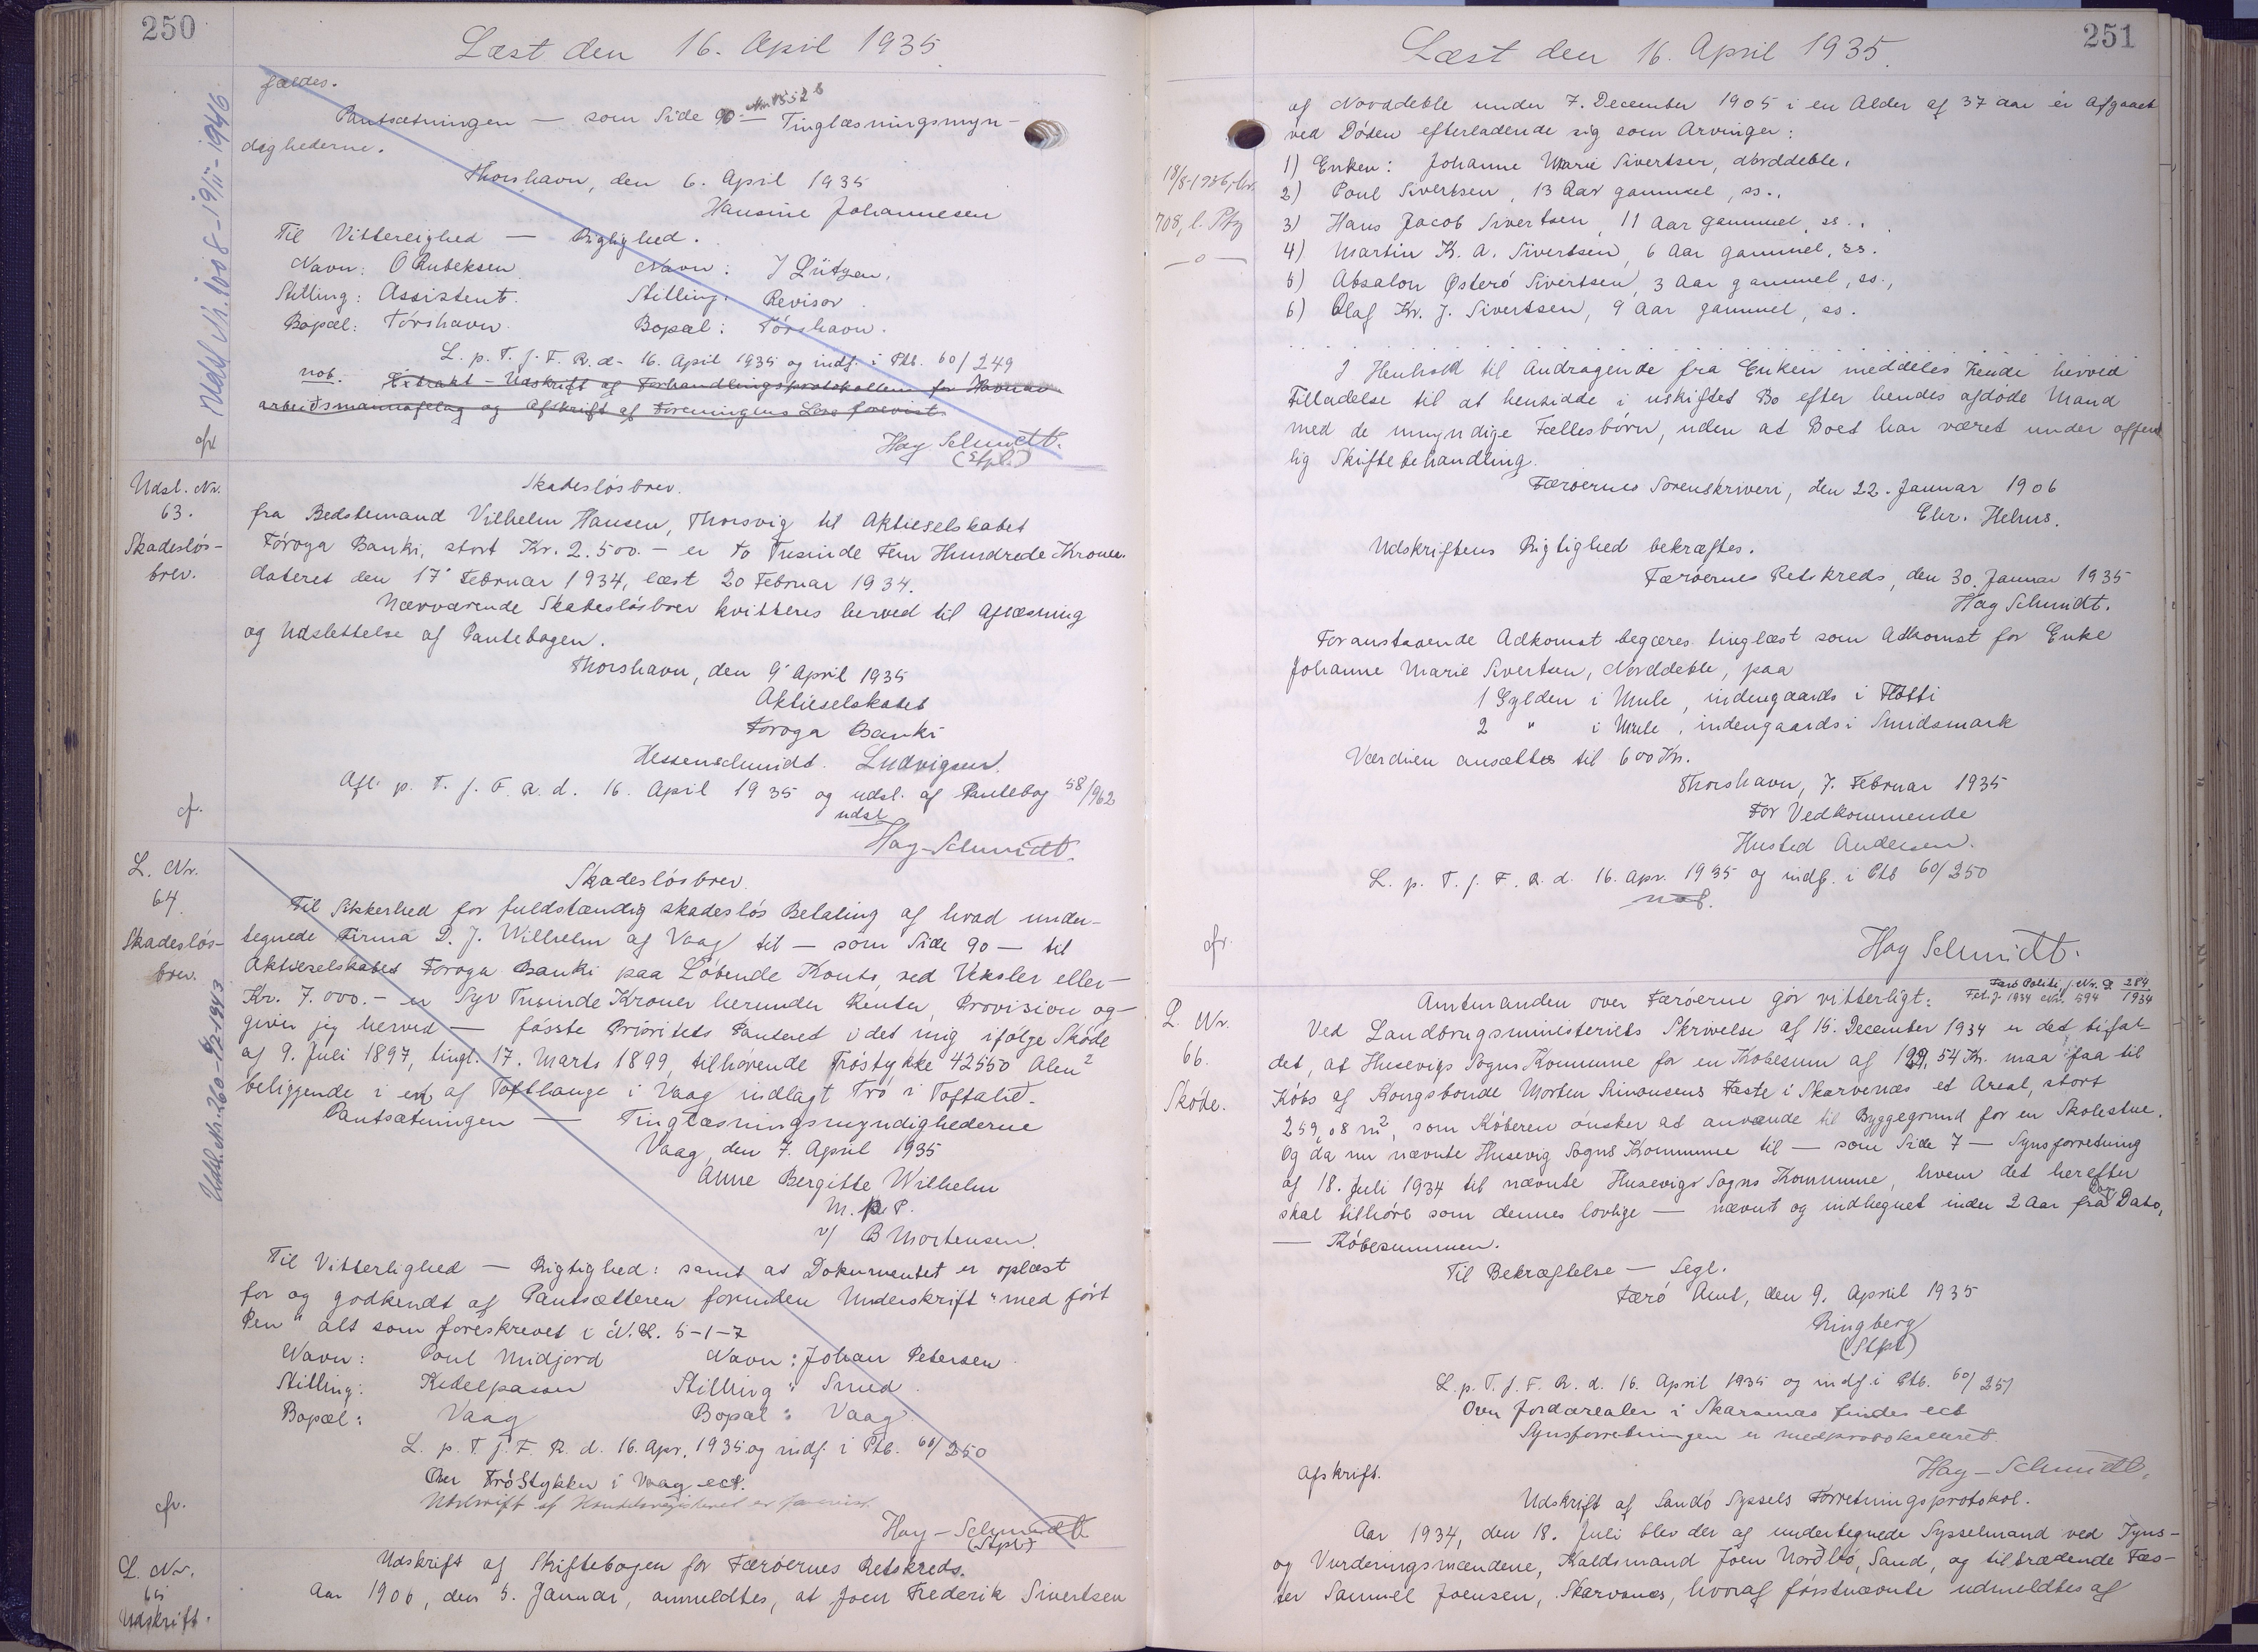 250
Læst den 16. April 1935.
fældes.
Pantsætningen — som Side 90 — Tinglæsningsmyn-
dighederne.
Thorshavn, den 6. April 1935
Hansine Johannesen
Til Vitterlighed — Rigtighed.
Navn: O Rubeksen Navn: J Lützen.
Stilling: Assistent. Stilling: Revisor.
Bopæl: Tórshavn. Bopæl: Tórshavn.
L. p. T. f. F. R. d. 16. April 1935 og indf. i Ptb. 60/249
not. Extrakt-Udskrift af Forhandlingsprotokollen for Havnar
arbeiðsmannafelag og Afskrift af Foreningens Love forevist.
Hay Schmidt.
(Stpl.)
Udsl. Nr. 1008-19/11-1946
cfr
Udsl. Nr.
63.
Skadesløs-
brev.
Skadesløsbrev.
fra Bedstemand Vilhelm Hansen, Thorsvig til Aktieselskabet
Føroya Banki, stort Kr. 2.500.- er To Tusinde Fem Hundrede Kroner.
dateret den 17' Februar 1934, læst 20 Februar 1934.
Nærværende Skadesløsbrev kvitteres herved til Aflæsning
og Udslettelse af Pantebogen.
Thorshavn, den 9' April 1935
Aktieselskabet
Føroya Banki
Hessenschmidt. Ludvigsen.
Afl. p. T. f. F. R. d. 16. April 1935 og udsl. af Pantebog 58/962
udsl
Hay-Schmidt.
cf.
L. Nr.
64.
Skadesløs-
brev.
Skadesløsbrev.
Til Sikkerhed for fuldstændig skadesløs Betaling af hvad under-
tegnede Firma D. J. Wilhelm af Vaag til — som Side 90 — til
Aktieselskabet Føroya Banki paa Løbende Konto, ved Veksler eller —
Kr. 7.000.- er Syv Tusinde Kroner herunder Renter, Provision og —
giver jeg herved — første Prioritets Panteret i det mig ifølge Skøde
af 9. Juli 1897, tingl. 17. Marts 1899, tilhørende Trøstykke 42550 Alen²
beliggende i en af Toftlange i Vaag indlagt Trø i Toftalið.
Pantsætningen — Tinglæsningsmyndighederne
Vaag, den 7. April 1935
Anne Bergitte Wilhelm
m. p. P.
v/ B Mortensen.
Til Vitterlighed — Rigtighed: samt at Dokumentet er oplæst
for og godkendt af Pantsætteren forinden Underskrift "med ført
Pen" alt som foreskrevet i N.L. 5-1-7
Navn: Poul Midjord Navn: Johan Petersen.
Stilling: Kedelpasser Stilling: Smed.
Bopæl: Vaag Bopæl: Vaag.
L. p. T. f. F. R. d. 16. Apr. 1935 og indf. i Ptb. 60/250
Over Trøstykker i Vaag ect.
Udskrift af Handelsregisteret er forevist.
Hay-Schmidt
(Stpl.)
cfr.
L. Nr.
65
Udskrift.
Udskrift af Skiftebogen for Færøernes Retskreds.
Aar 1906, den 5. Januar, anmeldtes, at Joen Frederik Sivertsen
251
Læst den 16. April 1935.
af Norddeble under 7. December 1905 i en Alder af 37 aar er afgaaet
ved Døden efterladende sig som Arvinger:
1) Enken: Johanne Marie Sivertsen, Norddeble.
2) Poul Sivertsen, 13 Aar gammel, ss.,
3) Hans Jacob Sivertsen, 11 Aar gammel, ss.,
4) Martin K. A. Sivertsen, 6 Aar gammel, ss.
5) Absalon Østerø Sivertsen, 3 Aar gammel, ss.,
6) Olaf Kr. J. Sivertsen, 9 Aar gammel, ss.
708, l. Ptg
— o —
I Henhold til Andragende fra Enken meddeles hende herved
Tilladelse til at hensidde i uskiftet Bo efter hendes afdøde Mand
med de umyndige Fællesbørn, uden at Boet har været under offent
lig Skiftebehandling.
Færøernes Sorenskriveri, den 22. Januar 1906
Chr. Helms.
Udskriftens Rigtighed bekræftes.
Færøernes Retskreds, den 30. Januar 1935
Hay Schmidt.
Foranstaaende Adkomst begæres tinglæst som Adkomst for Enke
Johanne Marie Sivertsen, Norddeble, paa
1 Gylden i Mule, indengaards i Flötti
2 " i Mule, indengaards i Smidsmark
Værdien ansættes til 600 Kr.
Thorshavn, 7. Februar 1935
For Vedkommende
Husted Andersen.
L. p. T. f. F. R. d. 16. Apr. 1935 og indf. i Ptb 60/250
not.
Hay Schmidt.
cfr.
L. Nr.
66.
Skøde.
Færø Politi, J. Nr. 284/1934
Fol. J 1934 Nr. 594
Amtmanden over Færøerne gør vitterligt:
Ved Landbrugsministeriets Skrivelse af 15. December 1934 er det bifal-
det, at Husevigs Sogns Kommune for en Købesum af 129,54 Kr. maa faa til
Købs af Kongsbonde Morten Simonsens Fæste i Skarvenæs et Areal, stort
259,08 m², som Køberen ønsker at anvende til Byggegrund for en Skolestue.
Og da nu nævnte Husevig Sogns Kommune til — som Side 7 — Synsforretning
af 18. Juli 1934 til nævnte Husevigs Sogns Kommune, hvem det herefter
skal tilhøre som dennes lovlige — nævnt og indhegnet inden 2 Aar fra Dags Dato,
— Købesummen.
Til Bekræftelse — Segl.
Færø Amt, den 9. April 1935
Ringberg
(Stpl)
L. p. T. f. F. R. d. 16. April 1935 og indf. i Ptb. 60/251
Over Jordarealer i Skarvenæs findes ect
Synsforretningen er medprotokolleret.
Hay-Schmidt.
Afskrift.
Udskrift af Sandø Syssels Forretningsprotokol.
Aar 1934, den 18. Juli blev der af undertegnede Sysselmand ved Syns-
og Vurderingsmændene, Kaldsmand Joen Norðbø, Sand, og tiltrædende Fæs-
ter Samuel Joensen, Skarvenes, hvoraf førstnævnte udmeldtes af